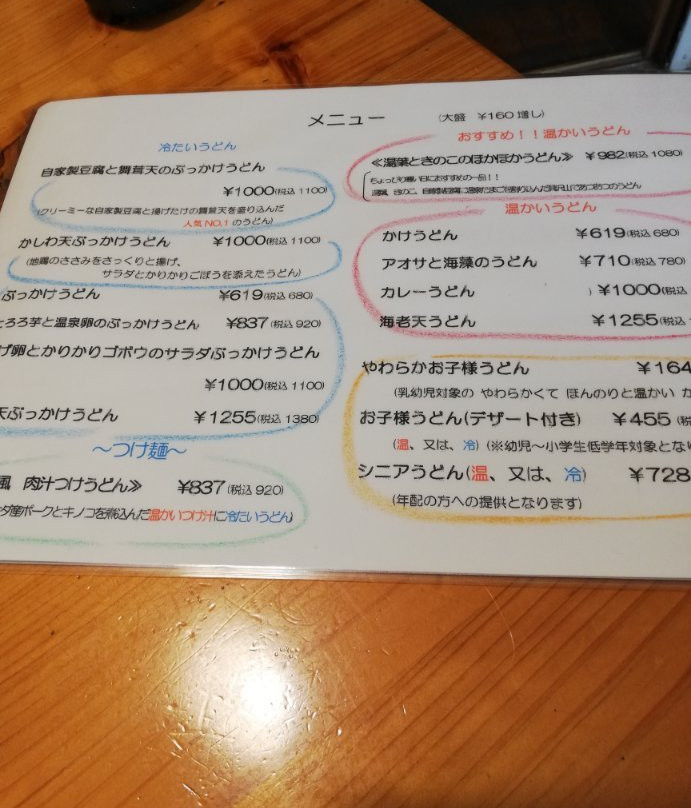 メニュー (大盛 ¥160増し)
冷たいうどん
自家製豆腐と舞茸天のぶっかけうどん
¥1000(税込1100)
(クリーミーな自家製豆腐と揚げたけの舞茸天を盛り込んだ
人気NO.1のうどん)
かしわ天ぶっかけうどん ¥1000(税込1100)
(地鶏のささみをさっくりと揚げ、
サラダとかりかりごぼうを添えたうどん)
ぶっかけうどん ¥619(税込680)
とろろ芋と温泉卵のぶっかけうどん ¥837(税込920)
げ卵とかりかりゴボウのサラダぶっかけうどん
¥1000(税込1100)
天ぶっかけうどん ¥1255(税込1380)
～つけ麺～
風 肉汁つけうどん≫ ¥837(税込920)
ダ産ポークとキノコを煮込んだ温かいつけ汁に冷たいうどん)
おすすめ！！温かいうどん
≪湯葉ときのこのほかほかうどん≫ ¥982(税込1080)
温かいうどん
かけうどん ¥619(税込680)
アオサと海藻のうどん ¥710(税込780)
カレーうどん ) ¥1000(税込
海老天うどん ¥1255(税込
やわらかお子様うどん ¥164
(乳幼児対象の やわらかくて ほんのりと温かい か
お子様うどん(デザート付き) ¥455 (税
(温、又は、冷) (※幼児～小学生低学年対象となり
シニアうどん(温、又は、冷) ¥728
(年配の方への提供となります)